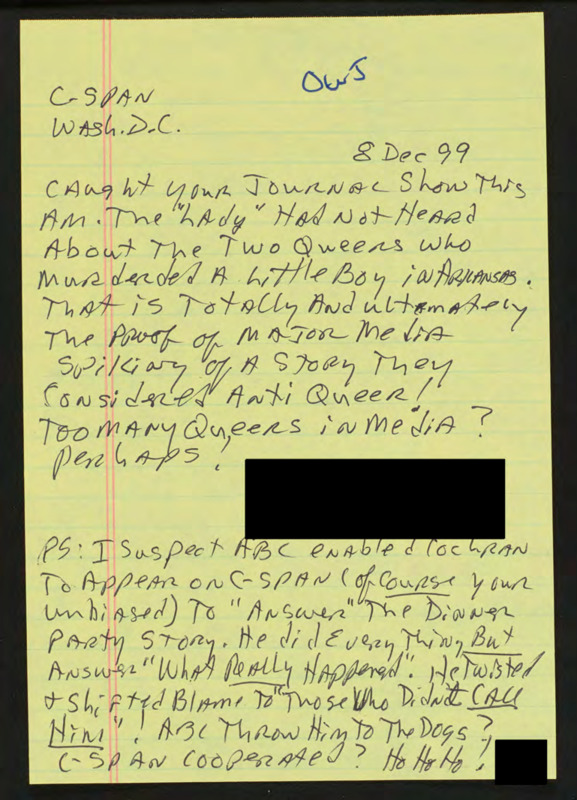 OWJ
C-SPAN
WASh. D.C.
8 Dec 99
CAught your JOURNAL Show This
AM. The "LAdy" HAd Not HeARd
About The Two Queers who
MuRdeRded A Little Boy in ARKANSAS.
That is Totally And ultamately
The PRoof of MAJOR MediA
SpiKiny of A STORy They
Considered Anti Queer!
Too MANy Queers in MediA?
PeRhAps!
PS: I Suspect ABC enabled Cochran
To AppeAR on C-SPAN (of Course your
unbiAsed) To "Answer" The Dinner
PARTy STORy. He did EveRy Thing But
Answer "What Really HAppened". He Twisted
& Shifted BlAme To "Those Who Didnt CALL
Him"! ABC ThRow Him To The Dogs?
C-SPAN COOPERATEd? Ho Ho Ho!